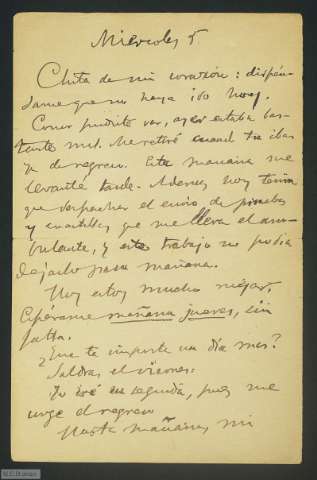 Miércoles 5
Chita de mi corazón: dispén-
same que no haya ido hoy.
Como pudiste ver, ayer estaba bas-
tante mal. Me retiré cuando tu ibas
ya de regreso. Esta mañana me
levanté tarde. Ademas, hoy tenía
que despachar el envio de pinceles
y cuartillas que me lleva el am-
bulante, y este trabajo no podia
dejarlo para mañana.
Hoy estoy mucho mejor.
Espérame mañana jueves, sin
falta.
¿Que te importe un dia mas?
Saldrás el viernes.
Yo iré en seguida, pues me
urge el regreso
Hasta mañana, mi